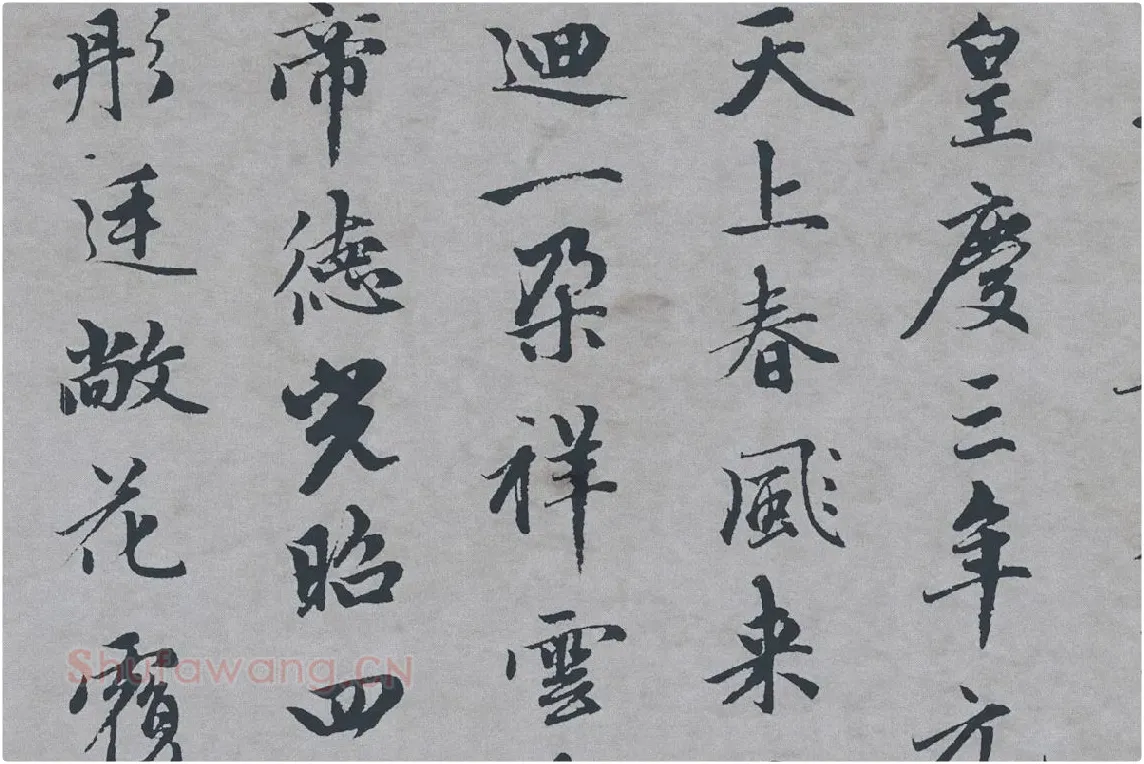 皇慶三年
天上春風来
迴一朵祥雲
帝德光昭四
彤廷敞花
Shufawang.CN